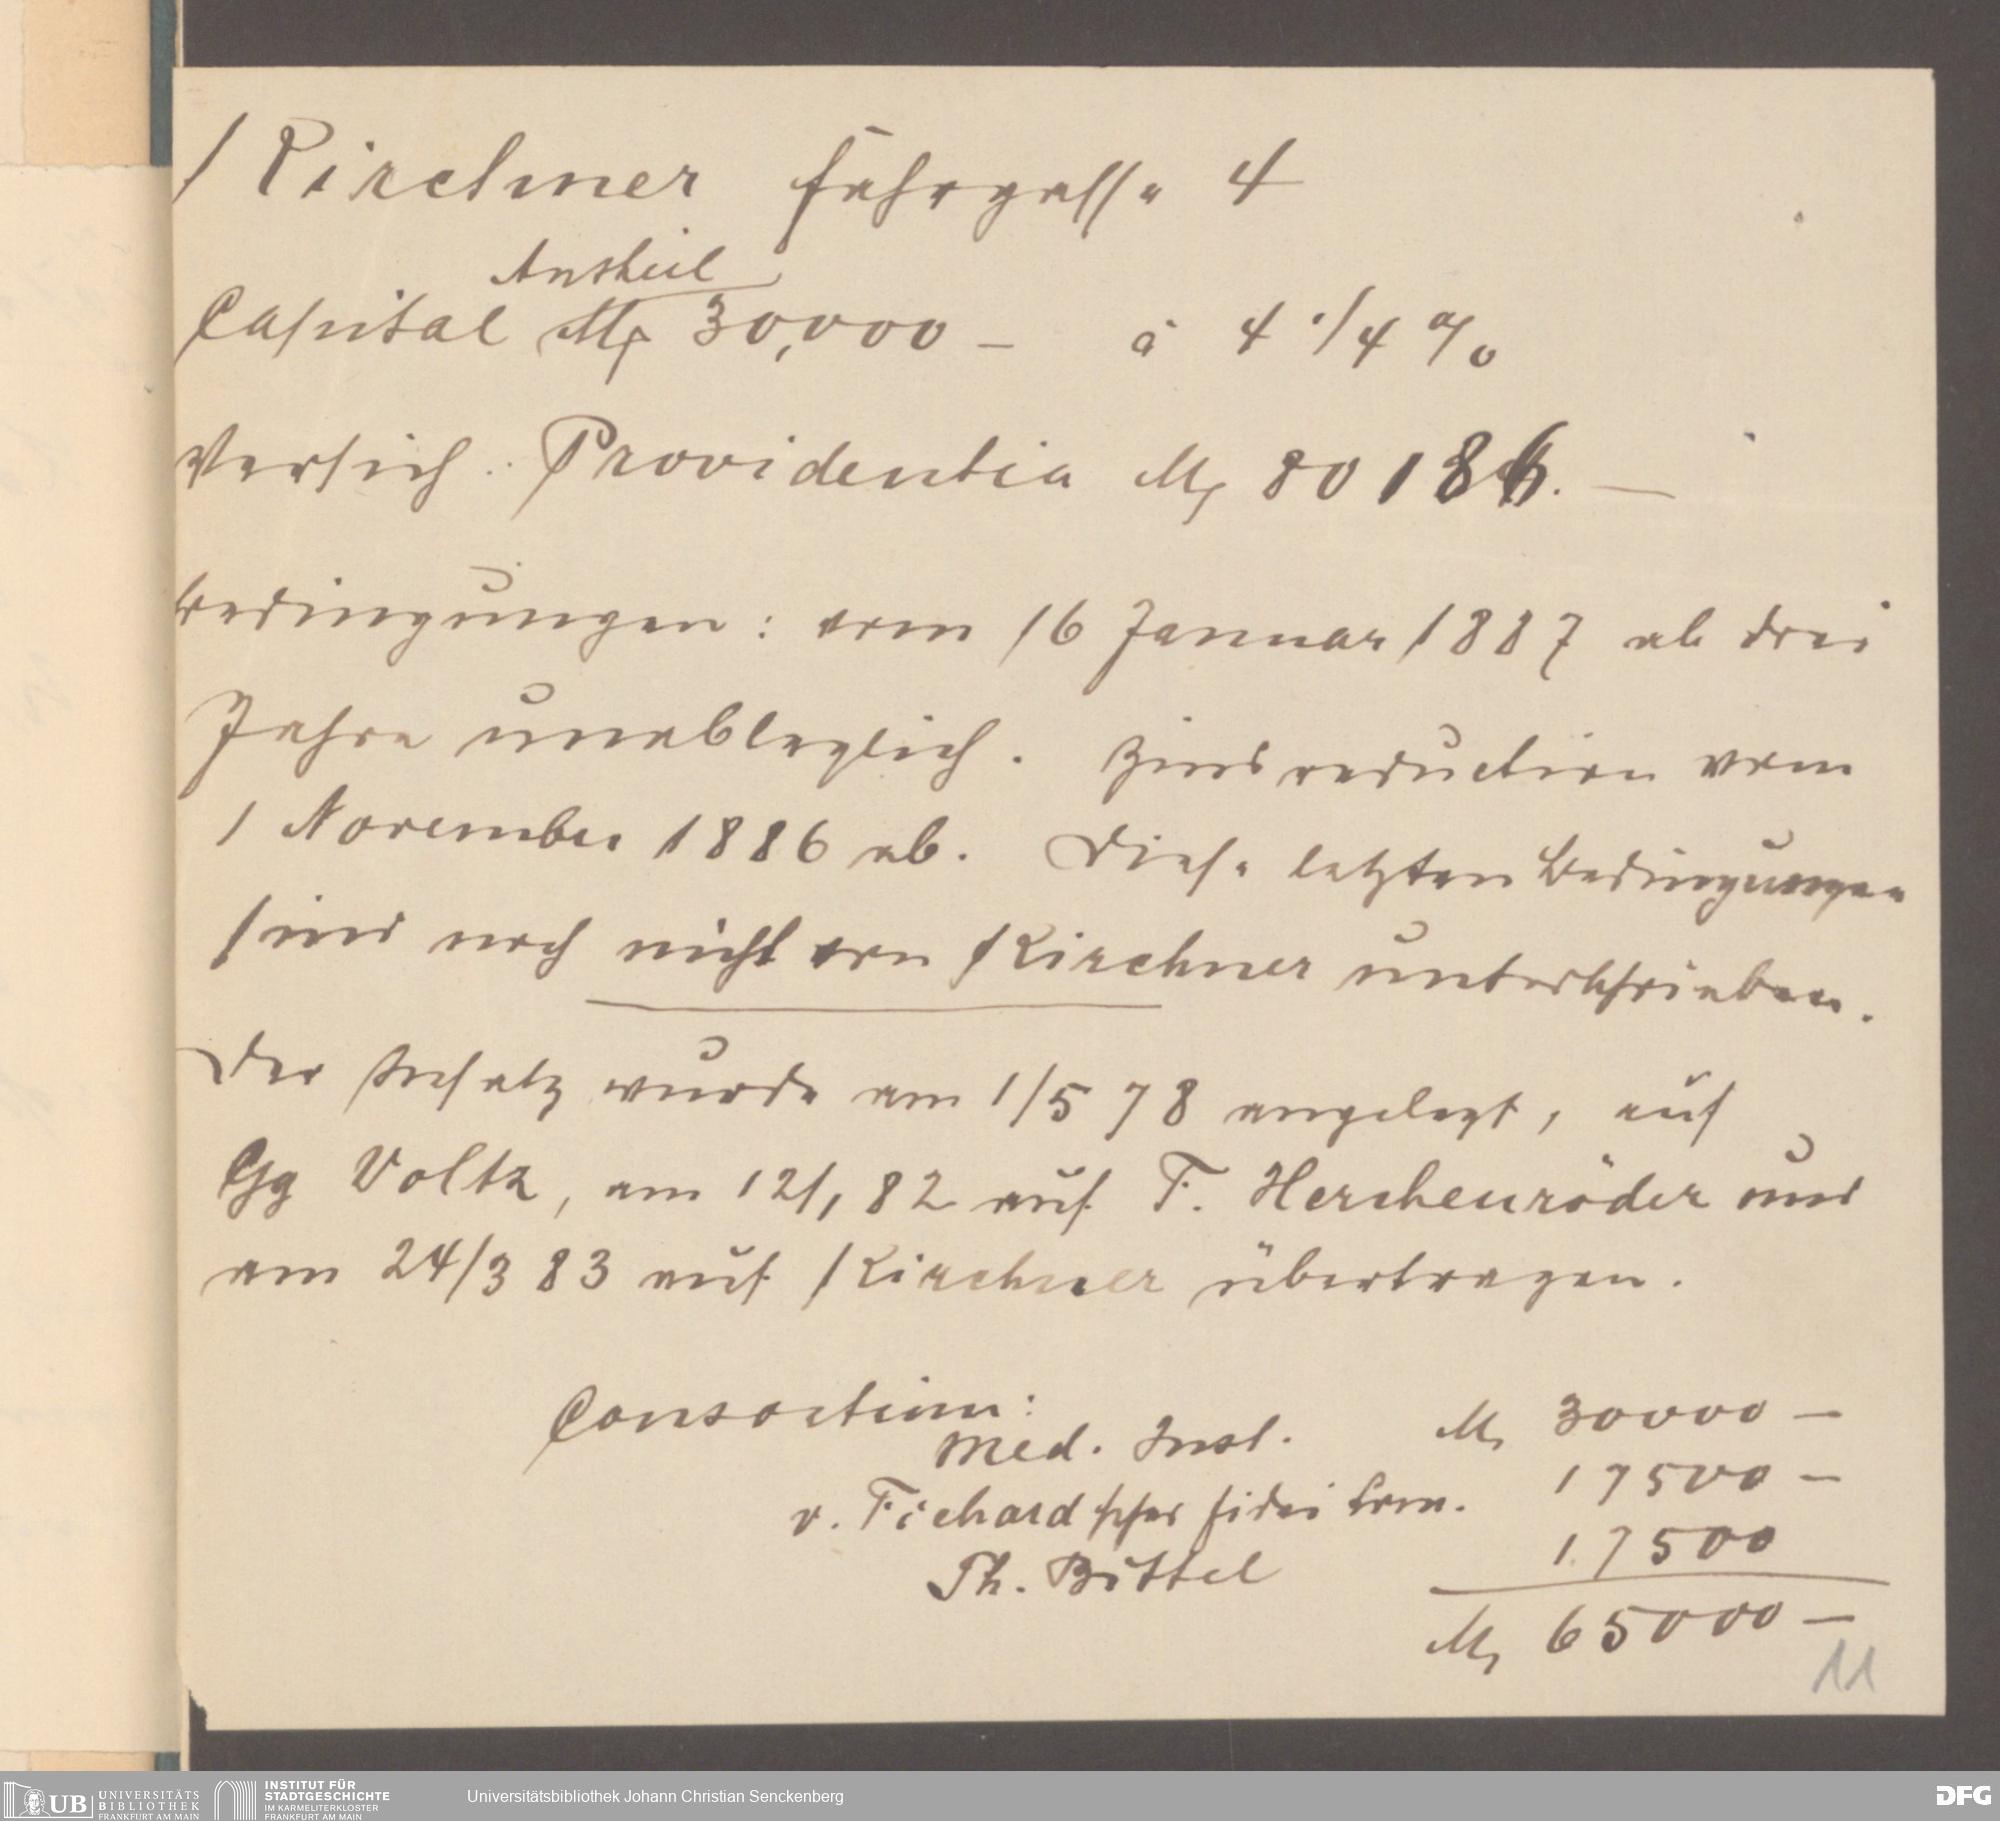 Kirchner Fahrgasse 4
Antheil
Capital M 30,000 – à 4 1/4 %
Versich. Providentia M 80186. —
Bedingungen: vom 16 Januar 1887 ab drei
Jahre unableglich. Zinsreduction vom
1 November 1886 ab. Diese letzten Bedingungen
sind noch nicht von Kirchner unterschrieben.
Der Insatz wurde am 1/5 78 angelegt, auf
Gg Voltz, am 12/1 82 auf F. Herchenröder und
am 24/3 83 auf Kirchner übertragen.
Consortium:
Med. Inst. M 30000 —
v. Fichard'sches Fideikom. 17500 —
Th. Büttel 17500
M 65000 —
11
UB UNIVERSITÄTS BIBLIOTHEK FRANKFURT AM MAIN
INSTITUT FÜR STADTGESCHICHTE IM KARMELITERKLOSTER FRANKFURT AM MAIN
Universitätsbibliothek Johann Christian Senckenberg
DFG